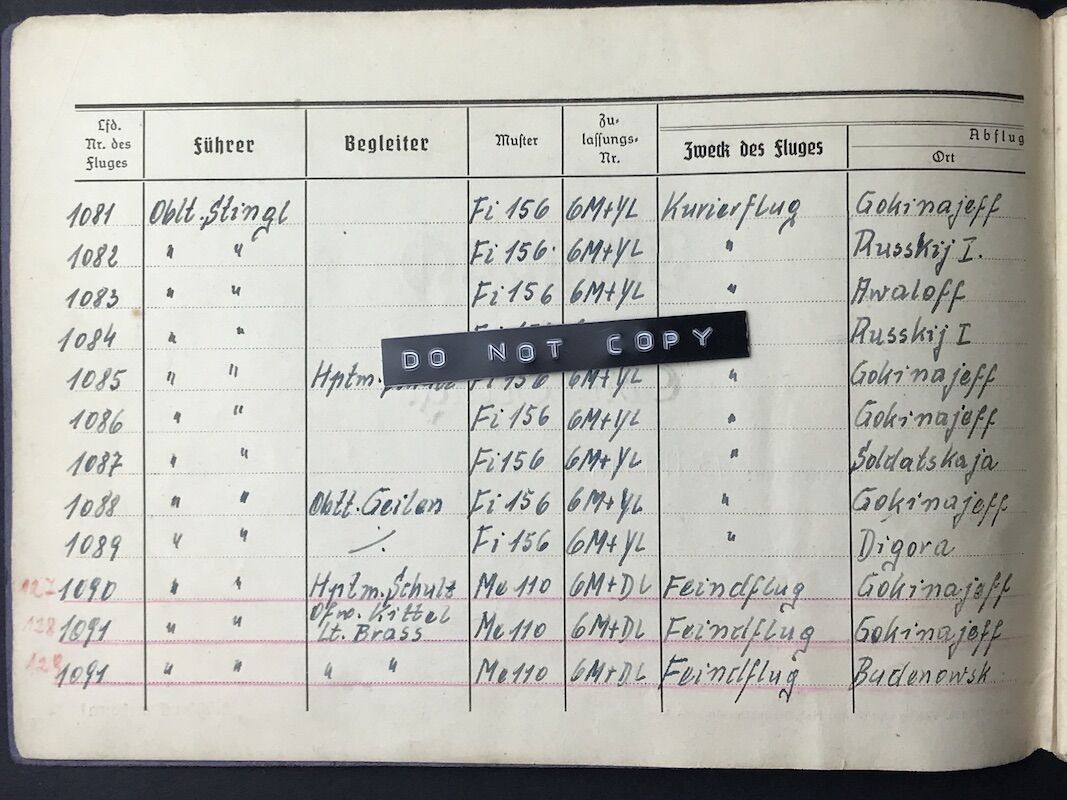 Lfd. Nr. des Fluges Führer Begleiter Muster Zu- lassungs- Nr. Zweck des Fluges Abflug Ort
1081 Oblt. Stingl Fi 156 6M+YL Kurierflug Gokinajeff
1082 " " Fi 156 6M+YL " Russkij I.
1083 " " Fi 156 6M+YL " Awaloff
1084 " " Russkij I
DO NOT COPY
1085 " " Hptm. Fi 156 6M+YL " Gokinajeff
1086 " " Fi 156 6M+YL " Gokinajeff
1087 " " Fi 156 6M+YL " Soldatskaja
1088 " " Oblt. Geilen Fi 156 6M+YL " Gokinajeff
1089 " " Fi 156 6M+YL " Digora
127 1090 " " Hptm. Schulz Me 110 6M+DL Feindflug Gokinajeff
Ofw. Kittel
128 1091 " " Lt. Brass Me 110 6M+DL Feindflug Gokinajeff
129 1091 " " " " Me 110 6M+DL Feindflug Budenowsk